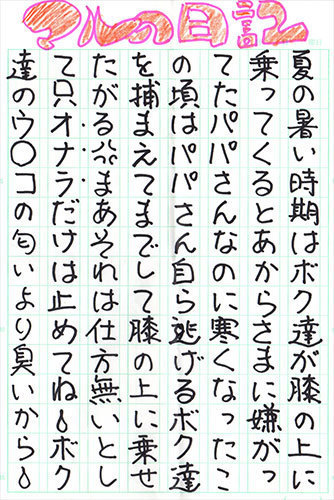 マルの日記
夏の暑い時期はボク達が膝の上に
乗ってくるとあからさまに嫌がっ
てたパパさんなのに寒くなったこ
の頃はパパさん自ら逃げるボク達
を捕まえてまでして膝の上に乗せ
たがる💦まあそれは仕方無いとし
て只オナラだけは止めてね💧ボク
達のウ〇コの匂いより臭いから💧